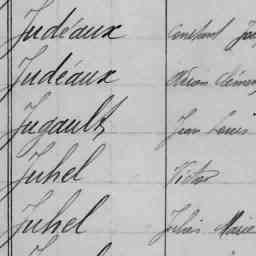 Judéaux Constant
Judéaux Clémen
Jugault Jean Louis
Juhel Victor
Juhel Jules Marie